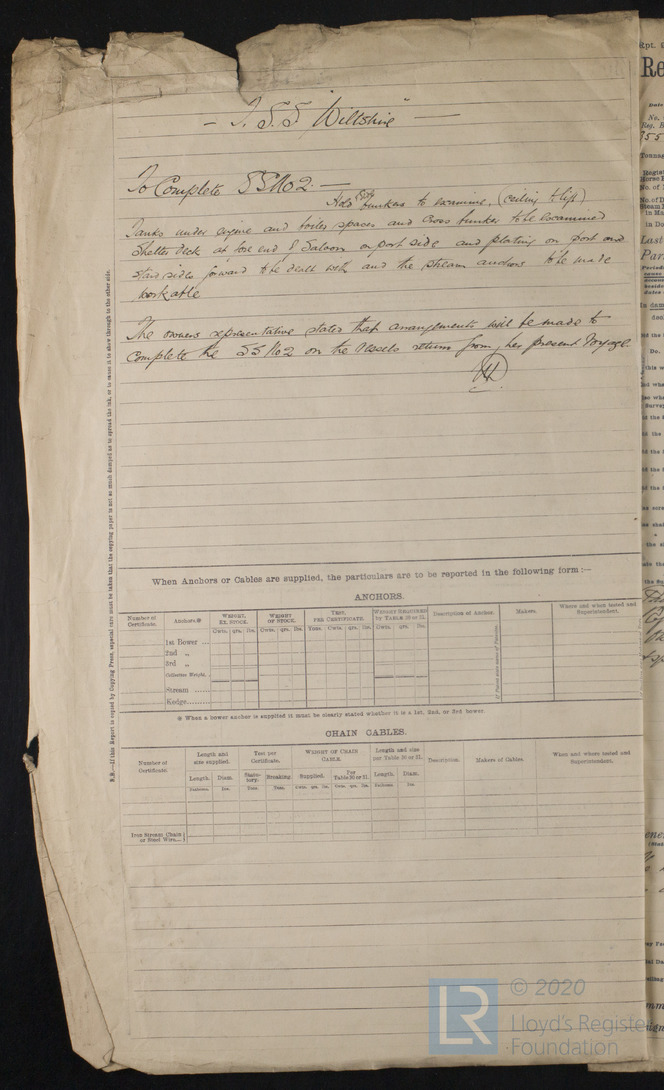 - T.S.S "Wiltshire" -
To Complete SS No 2. -
Side
Hold bunkers to examine. (ceiling to lift)
Tanks under engine and boiler spaces and Cross bunker to be examined
Shelter deck at fore end of Saloon on port side and plating on port and
starb sides forward to be dealt with and the stream anchors to be made
workable
The owners representative states that arrangements will be made to
complete the SS No 2 on the Vessels return from her present Voyage.
When Anchors or Cables are supplied, the particulars are to be reported in the following form :—
ANCHORS.
Number of Certificate. Anchors.※ WEIGHT, EX. STOCK. WEIGHT OF STOCK. TEST, PER CERTIFICATE. WEIGHT REQUIRED by TABLE 30 or 31. Description of Anchor. Makers. Where and when tested and Superintendent.
Cwts. qrs. lbs. Cwts. qrs. lbs. Tons. Cwts. qrs. lbs. Cwts. qrs. lbs.
1st Bower ...
2nd „
3rd „
Collective Weight
Stream ......
Kedge........
※ When a bower anchor is supplied it must be clearly stated whether it is a 1st, 2nd, or 3rd bower.
CHAIN CABLES.
Number of Certificate. Length and size supplied. Test per Certificate. WEIGHT OF CHAIN CABLE. Length and size per Table 30 or 31. Description. Makers of Cables. When and where tested and Superintendent.
Length. Diam. Statutory. Breaking. Supplied. Per Table 30 or 31. Length. Diam.
Fathoms. Ins. Tons. Tons. Cwts. qrs. lbs. Cwts. qrs. lbs. Fathoms. Ins.
Iron Stream Chain
or Steel Wire...
N.B.—If this Report is copied by Copying Press, especial care must be taken that the copying paper is not so much damped as to spread the ink, or to cause it to show through to the other side.
LR © 2020
Lloyd's Register
Foundation